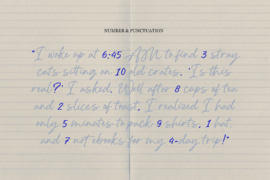 NUMBER & PUNCTUATION
"I woke up at 6:45 AM to find 3 stray
cats sitting on 10 old crates. 'Is this
real?' I asked. Well after 8 cups of tea
and 2 slices of toast, I realized I had
only 5 minutes to pack 9 shirts, 1 hat,
and 7 not ebooks for my 4-day trip!"